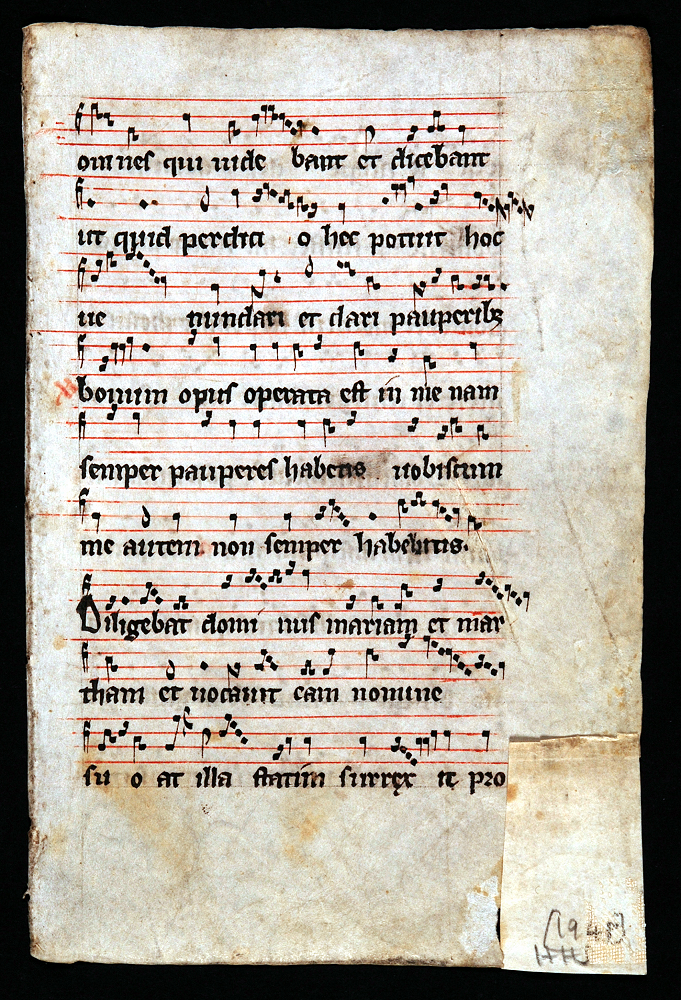 omnes qui uide bant et dicebant
ut quid perditi o hec potuit hoc
ue nundari et dari pauperibꝫ
bonum opus operata est in me nam
semper pauperes habetis uobiscum
me autem non semper habebitis.
Diligebat domi nus mariam et mar
tham et uocauit eam nomine
su o at illa statim surrex it pro
[1948]